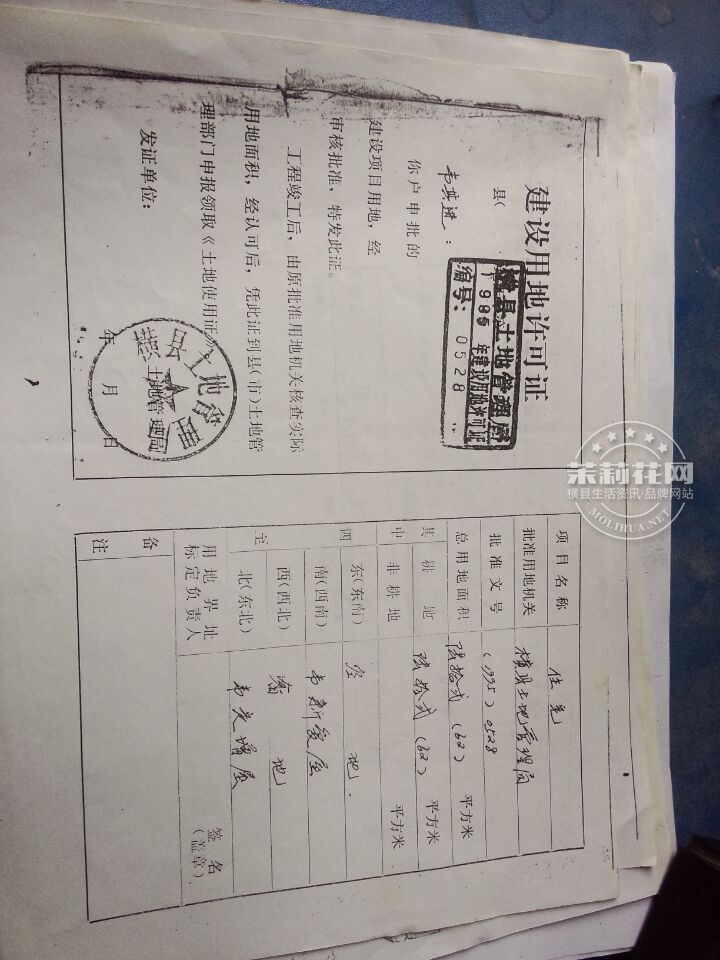 建设用地许可证
县(
横县土地管理局
1995年建设用地许可证
编号：0528
韦英进：
你户申批的
建设项目用地，经
审核批准，特发此证。
工程竣工后，由原批准用地机关核查实际
用地面积，经认可后，凭此证到县(市)土地管
理部门申报领取《土地使用证》
发证单位：
土地管理局
年 月 日
项目名称 住宅
批准用地机关 横县土地管理局
批准文号 (1995) 0528
总用地面积 陆拾贰 (62) 平方米
其中 耕地 陆拾贰 (62) 平方米
非耕地 平方米
四至 东(东南) 空地.
南(西南) 韦新发屋
西(西北) 地
北(东北) 韦光增屋
用地界址
标定负责人 签名
(盖章)
备注
茉莉花网
横县生活资讯·品牌网站
MOLIHUA.NET